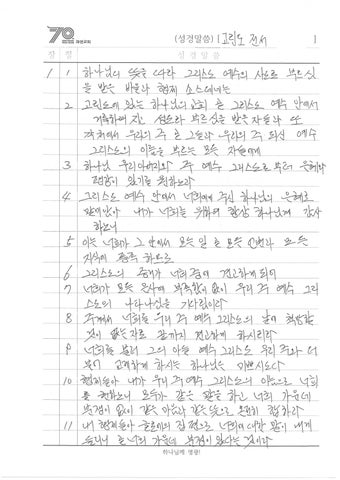 70 제생교회 (성경말씀) [고린도 전서 ] 1
장 절 성경말씀
1 1 하나님의 뜻을 따라 그리스도 예수의 사도로 부르심
을 받은 바울과 형제 소스데네는
2 고린도에 있는 하나님의 교회 곧 그리스도 예수 안에서
거룩하여지고 성도라 부르심을 받은 자들과 또
각처에서 우리의 주 곧 그들과 우리의 주 되신 예수
그리스도의 이름을 부르는 모든 자들에게
3 하나님 우리 아버지와 주 예수 그리스도로부터 은혜와
평강이 있기를 원하노라
4 그리스도 예수 안에서 너희에게 주신 하나님의 은혜로
말미암아 내가 너희를 위하여 항상 하나님께 감사
하노니
5 이는 너희가 그 안에서 모든 일 곧 모든 언변과 모든
지식에 풍족 하므로
6 그리스도의 증거가 너희 중에 견고하게 되어
7 너희가 모든 은사에 부족함이 없이 우리 주 예수 그리
스도의 나타나심을 기다림이라
8 주께서 너희를 우리 주 예수 그리스도의 날에 책망할
것이 없는 자로 끝까지 견고하게 하시리라
9 너희를 불러 그의 아들 예수 그리스도 우리 주와 더
불어 교제하게 하시는 하나님은 미쁘시도다
10 형제들아 내가 우리 주 예수 그리스도의 이름으로 너희
를 권하노니 모두가 같은 말을 하고 너희 가운데
분쟁이 없이 같은 마음과 같은 뜻으로 온전히 합하라
11 내 형제들아 글로에의 집 편으로 너희에 대한 말이 내게
들리니 곧 너희 가운데 분쟁이 있다는 것이라
하나님께 영광!